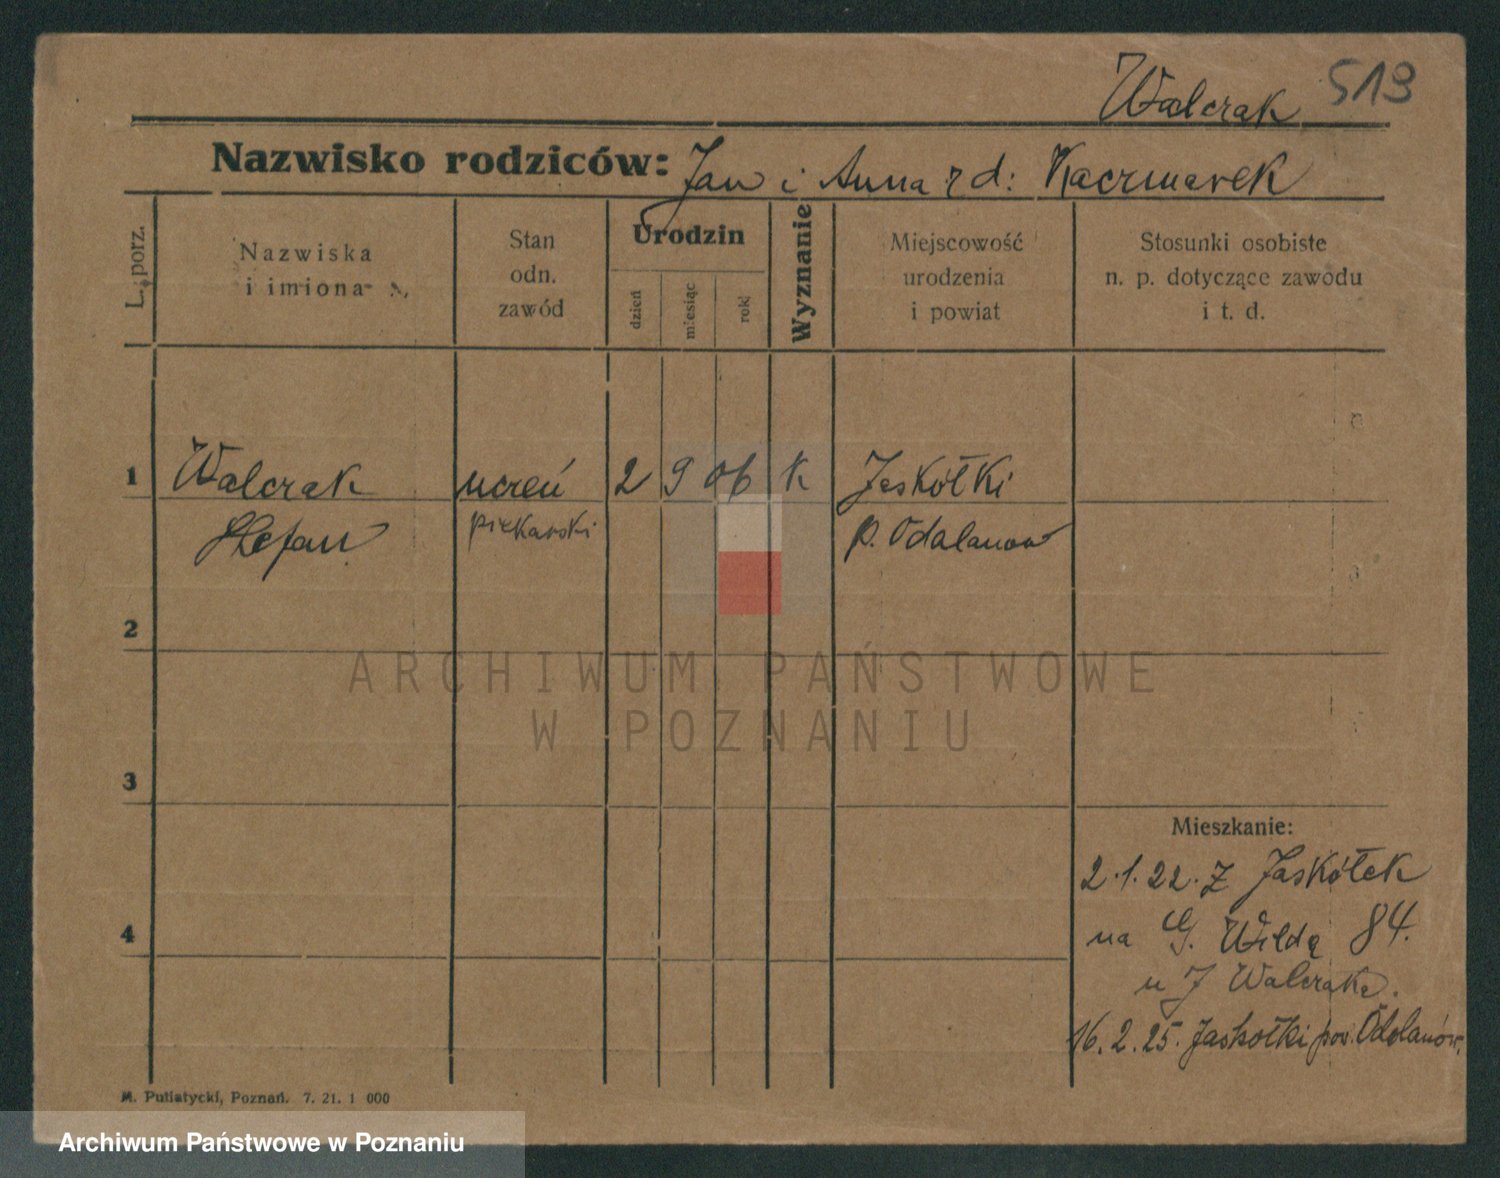 Walczak 519
Nazwisko rodziców: Jan i Anna z d: Kaczmarek
L. porz.
Nazwiska
i imiona
Stan
odn.
zawód
Urodzin
dzień
miesiąc
rok
Wyznanie
Miejscowość
urodzenia
i powiat
Stosunki osobiste
n. p. dotyczące zawodu
i t. d.
1 Walczak uczeń 2 9 06 k Jaskółki
Stefan piekarski p. Odolanow
2
3
4
Mieszkanie:
2.1.22. z Jaskółek
na G. Wildę 84.
u J Walczaka.
16.2.25. Jaskółki pow. Odolanów.
M. Putiatycki, Poznań. 7. 21. 1 000
ARCHIWUM PAŃSTWOWE
W POZNANIU
Archiwum Państwowe w Poznaniu